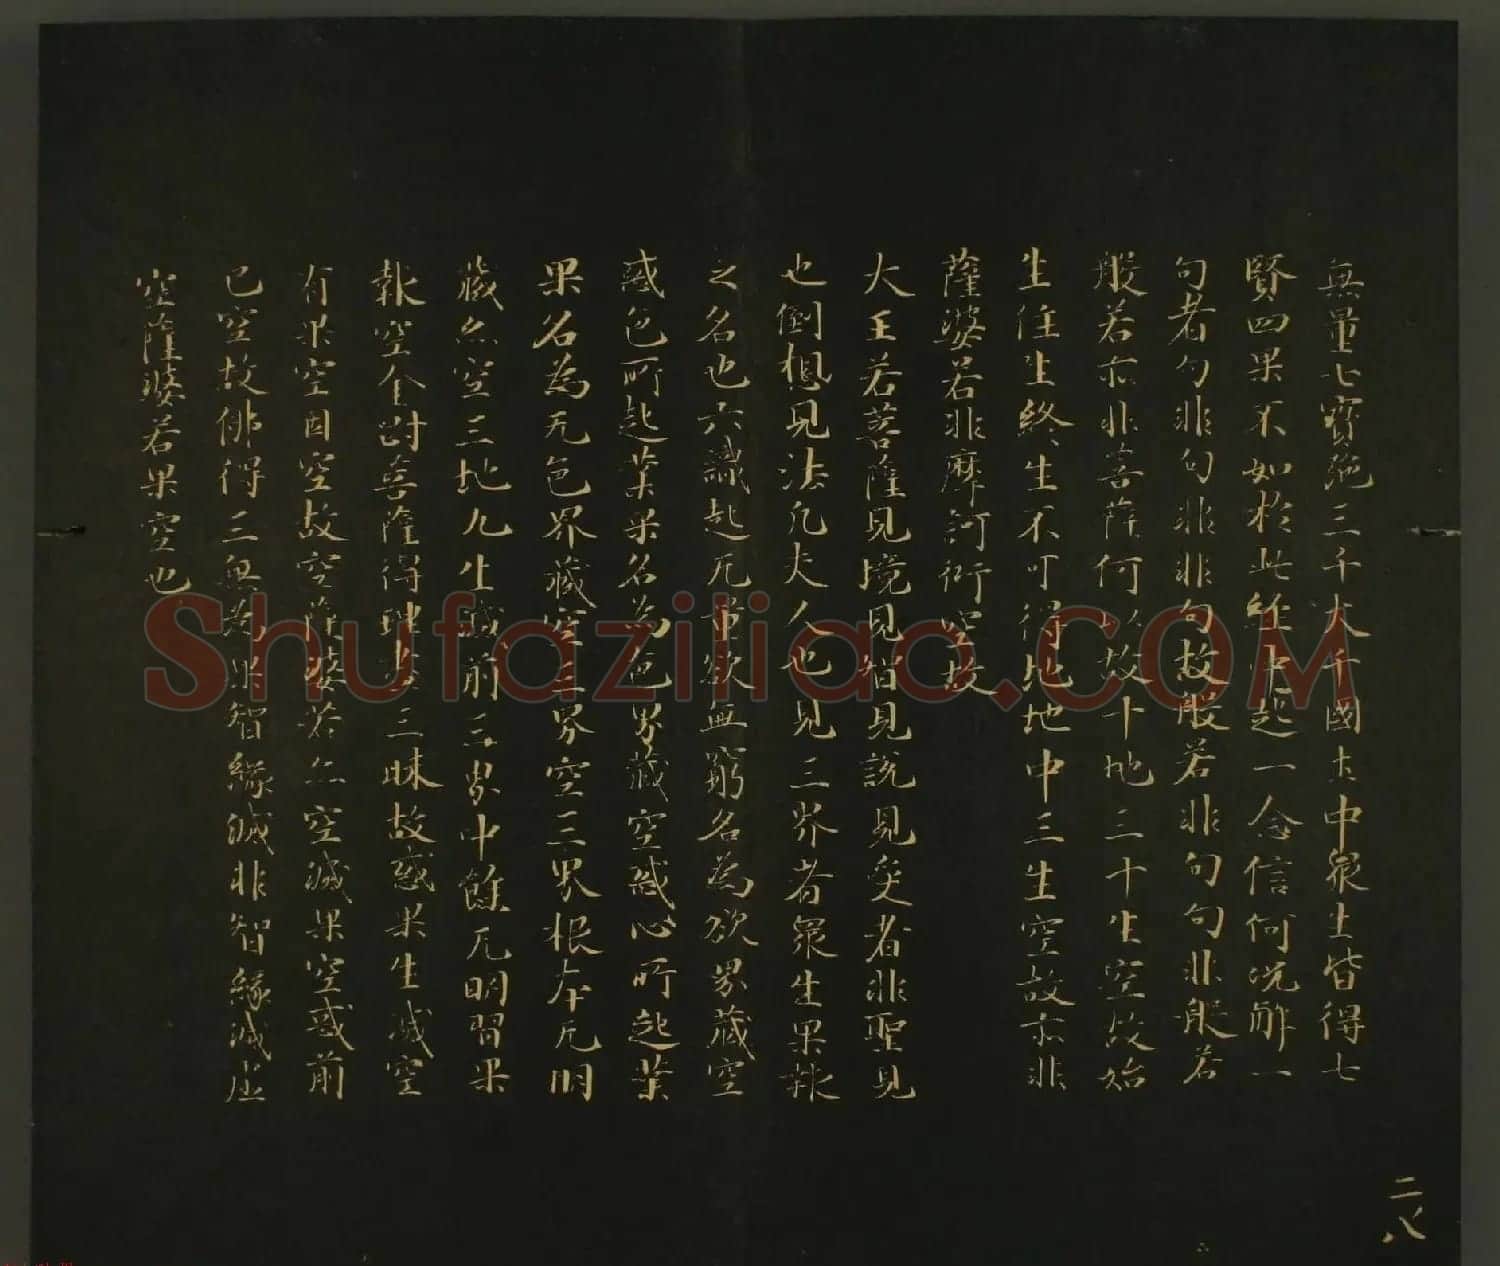 無量七寶絶三千大千國土中衆生皆得七
賢四果不如於此經中起一念信何況解一
句者句非句非非句故般若非句句非般若
般若亦非菩薩何以故十地三十生空故始
生住生終生不可得地地中三生空故亦非
薩婆若非摩訶衍空故
大王若菩薩見境見智見說見受者非聖見
也倒想見法凡夫人也見三界者衆生果報
之名也六識起无量欲無窮名為欲界藏空
惑色所起業果名為色界藏空惑心所起業
果名為无色界藏空三界空三界根本无明
藏亦空三地九生滅前三界中餘无明習果
報空金剛菩薩得理盡三昧故惑果生滅空
有果空因空故空薩婆若亦空滅果空惑前
已空故佛得三無為果智緣滅非智緣滅虛
空薩婆若果空也
二八
Shufaziliao.COM